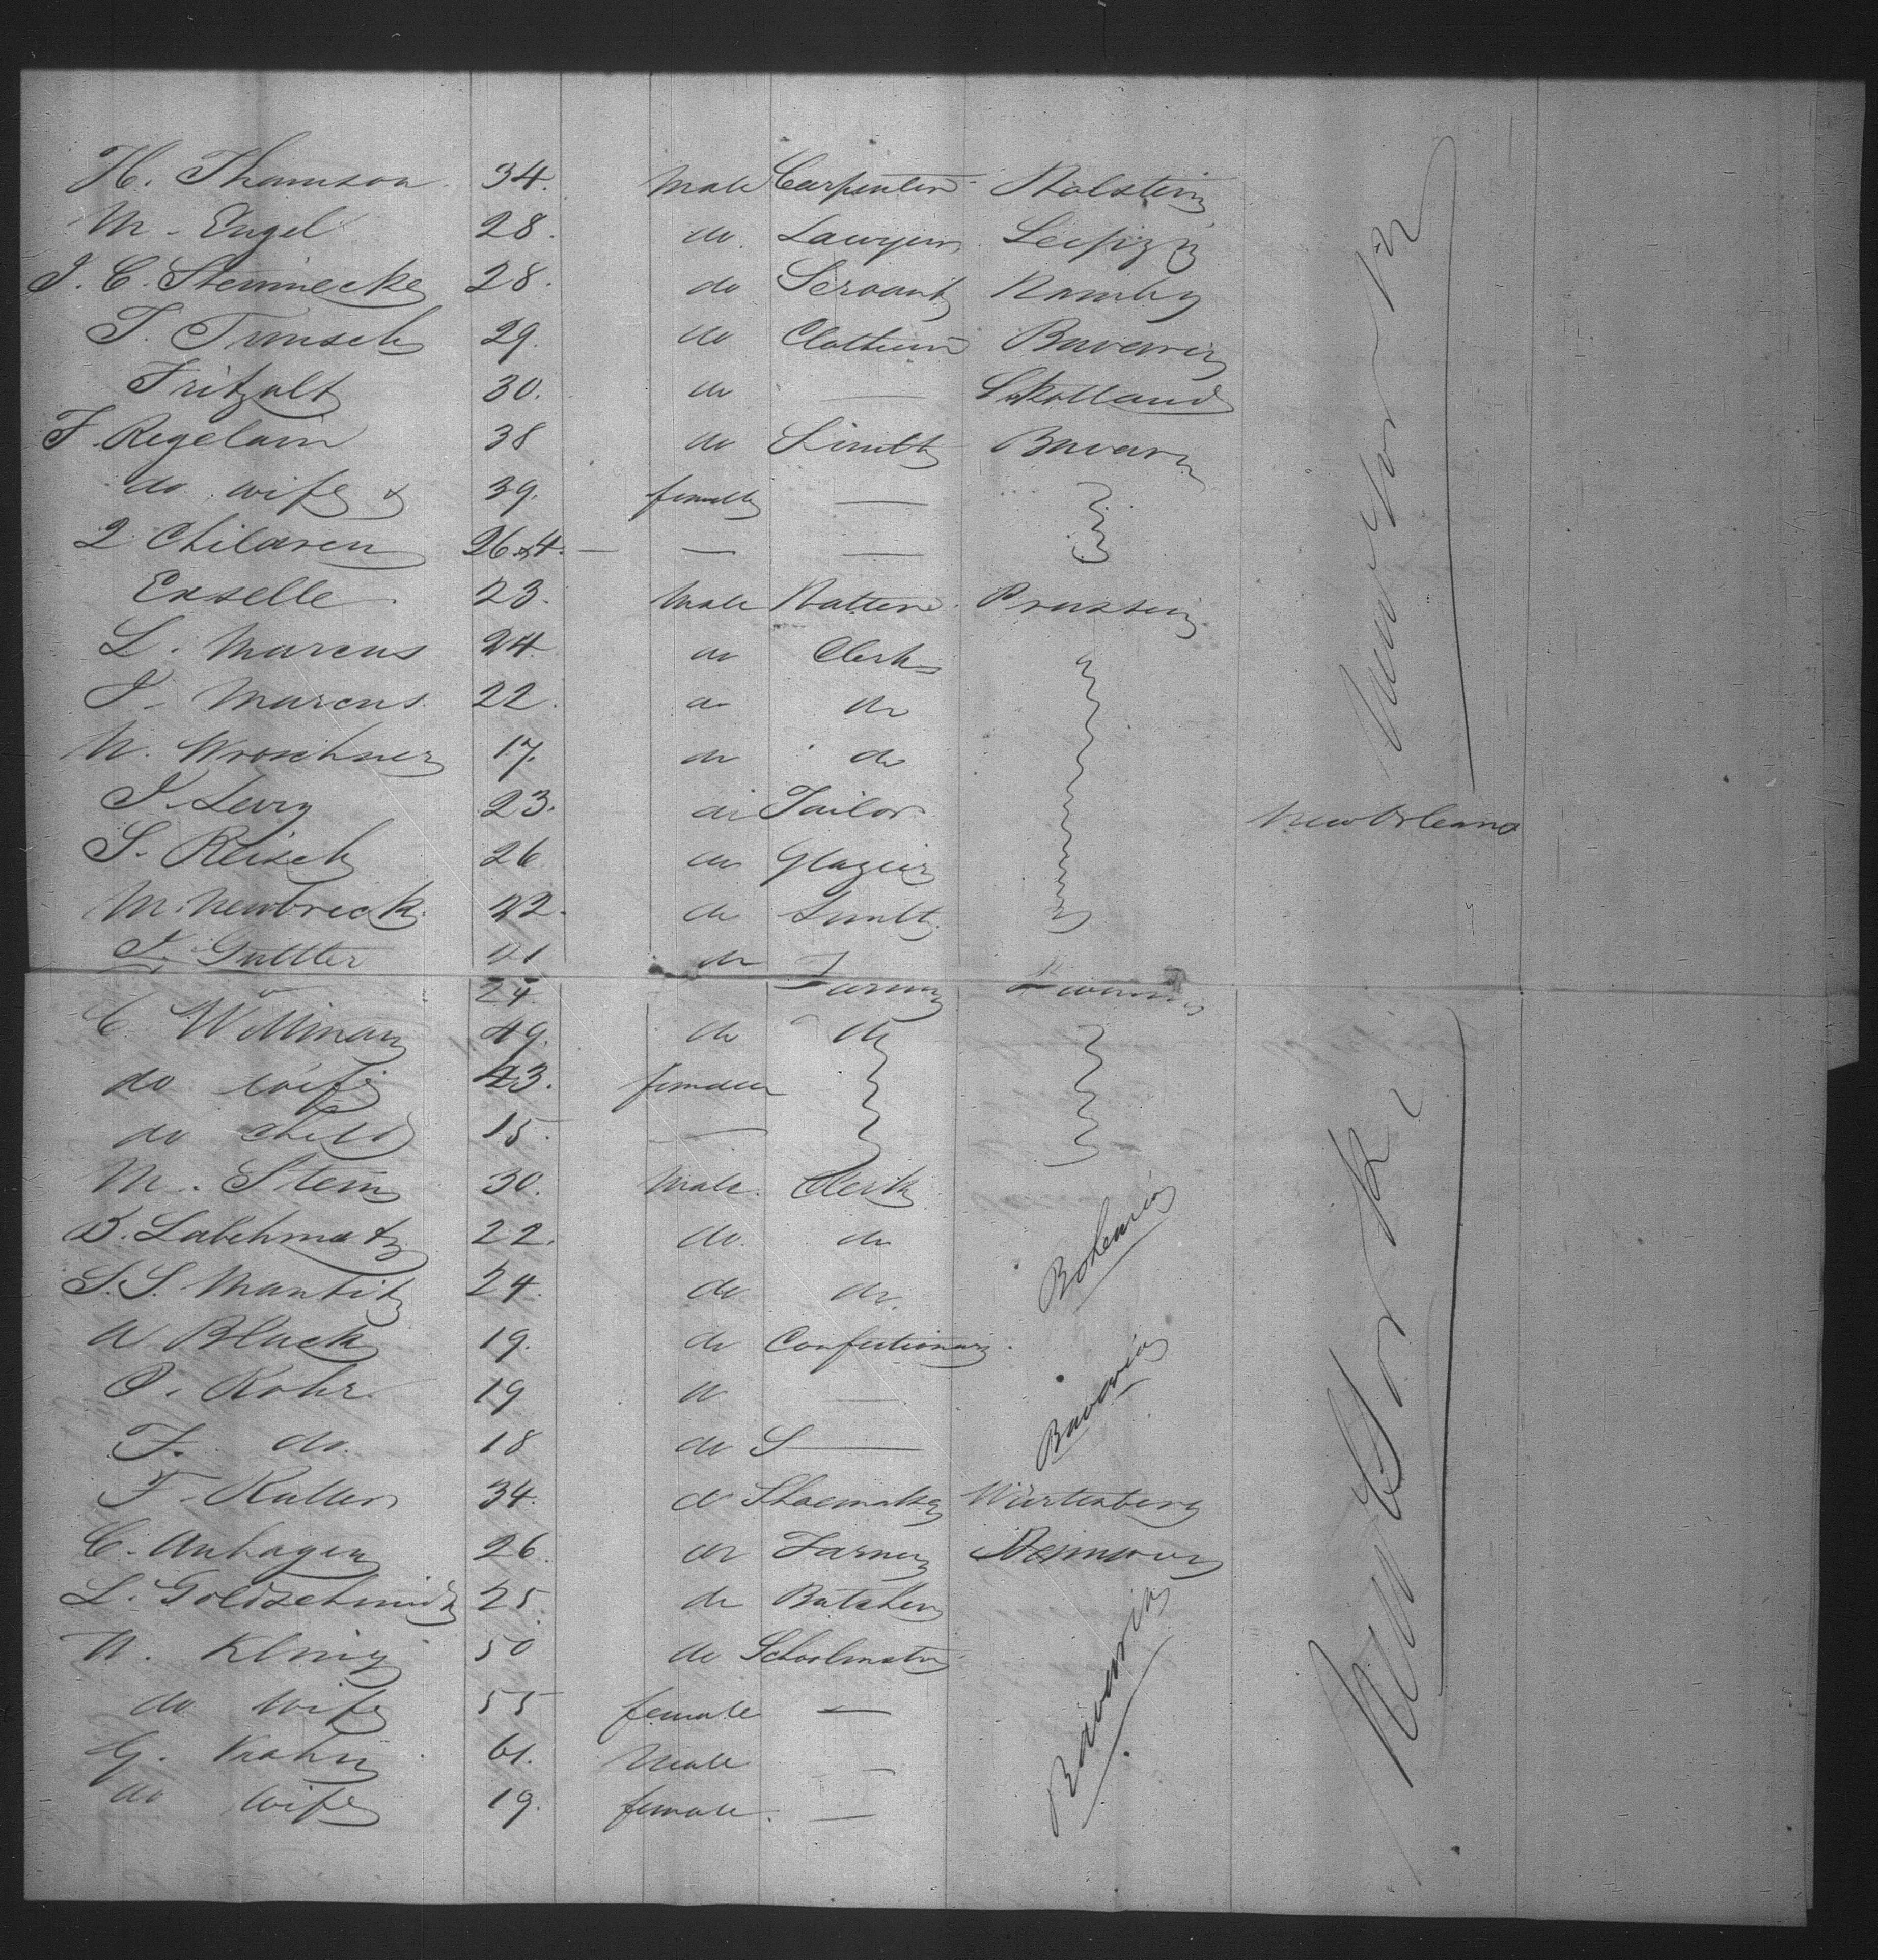 H. Thamson 34. Male Carpenter Holstein
M. Engel 28. do. Lawyer Leipzig
J. C. Steinnecke 28. do Servant Hamby
T. Trunsch 29. do Clothier Bavaria
Fritzalt 30. do — Holland
F. Regelain 38 do Smith Bavaria
do wife & 39. female —
2 Children 26 & 4. — — —
Exselle 23. Male Hatter Prussia
L. Marcus 24 do Clerk
J. Marcus 22. do do
N. Wroschner 17. do do
J. Levy 23. do Tailor New Orleans
S. Reisch 26 do Glazier
M. Newbreck 22. do Smith
J. Guttler 21 do
24. Farmer
C. Willman 49. do do
do wife 43. female
do child 15. —
M. Stern 30. Male. Clerk
B. Labehmatz 22. do. do
S. S. Mantitz 24. do do.
A Black 19. do Confectionary
P. Rohr 19 do —
F. do. 18 do S —
F. Kuller 34. do Shoemaker Würtenberg
C. Anhagen 26. do Farmer Hannover
L. Goldschmidt 25. do Butcher
N. König 50 do Schoolmaster
do wife 55 female —
G. Krahn 61. Male —
do wife 19. female. —
New York
Bohemia
Bavaria
Bavaria
New York